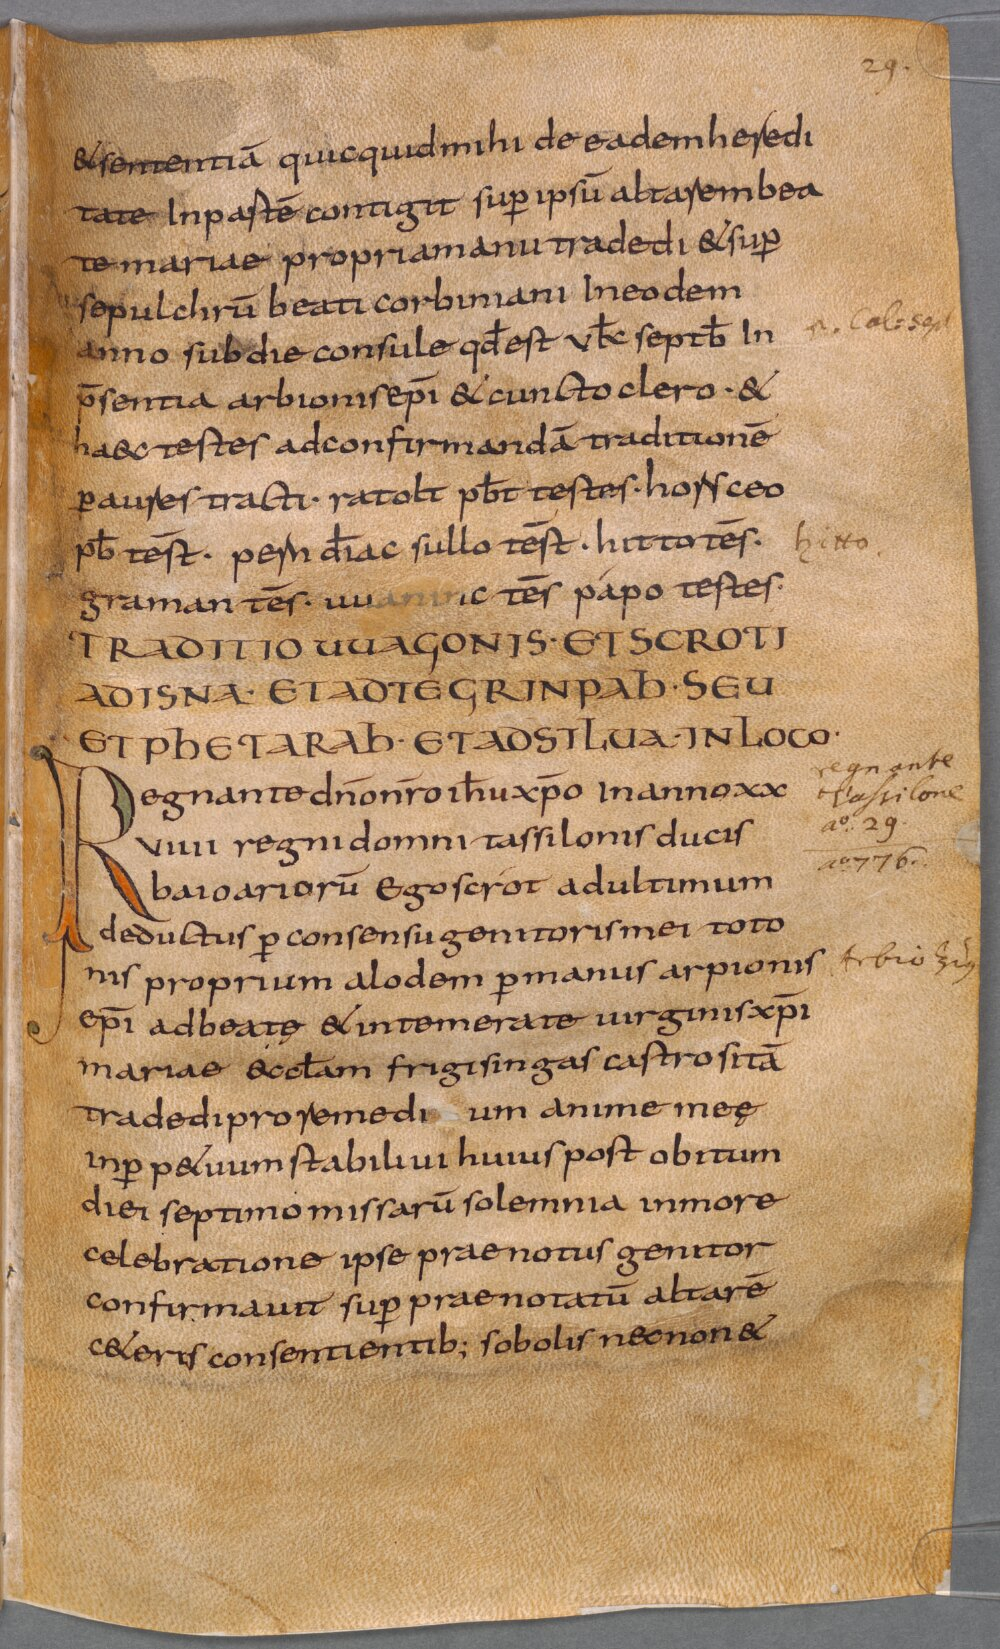 29.
&sententiā quicquid mihi de eadem heredi
tate In partē contigit sup ipsū altarem bea
te mariae propria manu tradedi & sup
sepulchrū beati corbiniani In eodem
anno sub die consule qđ est vƚc septƀ In
p̄sentia arbionis ep̄i & cuncto clero · &
haec testes ad confirmandā traditionē
p aures tracti · ratolt pƀt testes · horsceo
pƀ tēst · persn điac sullo tēst · hitto tēs ·
hitto.
graman tēs · uuaninc tēs papo testes ·
TRADITIO UUAGONIS · ET SCROTI
AD ISNA · ET AD TEGRINPAH · SEU
ET PHETARAH · ET AD SILUA · IN LOCO ·
Regnante dn̄o nr̄o ih̄u xp̄o In anno xx
regnante
Tassilone
aº. 29.
aº 776.
viiii regni domni tassilonis ducis
baioariorū Ego scrot ad ultimum
deductus p consensu genitoris mei toto
nis proprium alodem p manus arpionis
ep̄i ad beatę & intemerate uirginis xp̄i
mariae eccƚam frigisingas castro sitā
tradedi pro remedi um anime meę
inp p&uum stabiliui huius post obitum
diei septimo missarū solemnia in more
celebratione ipse praenotus genitor
confirmauit sup praenotatū altarē
c&eris consentientib; sobolis necnon &